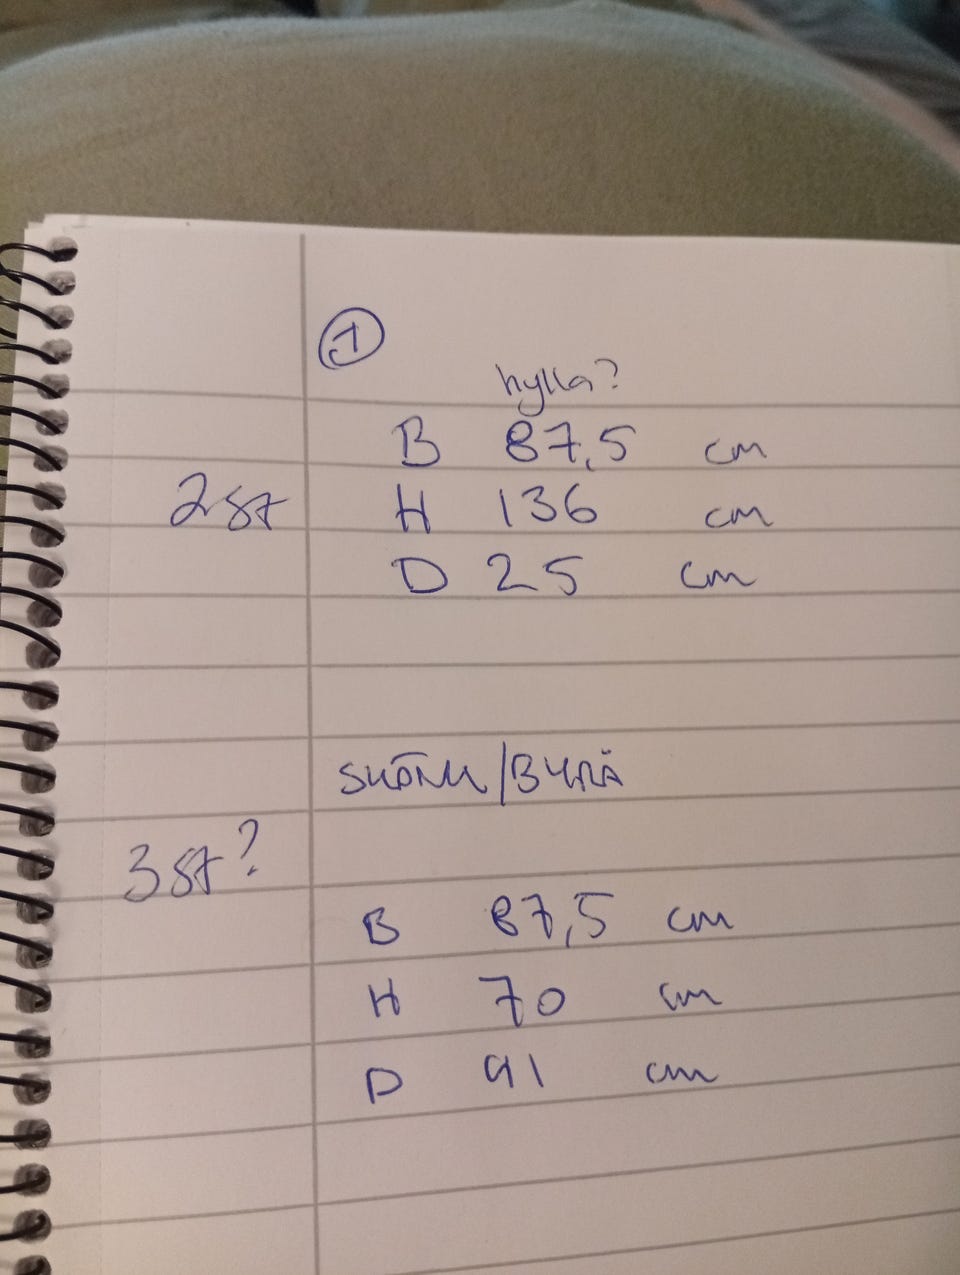 ①
hylla?
B 87,5 cm
2 st H 136 cm
D 25 cm
SKÄNK/BYRÅ
3 st?
B 87,5 cm
H 70 cm
D 41 cm